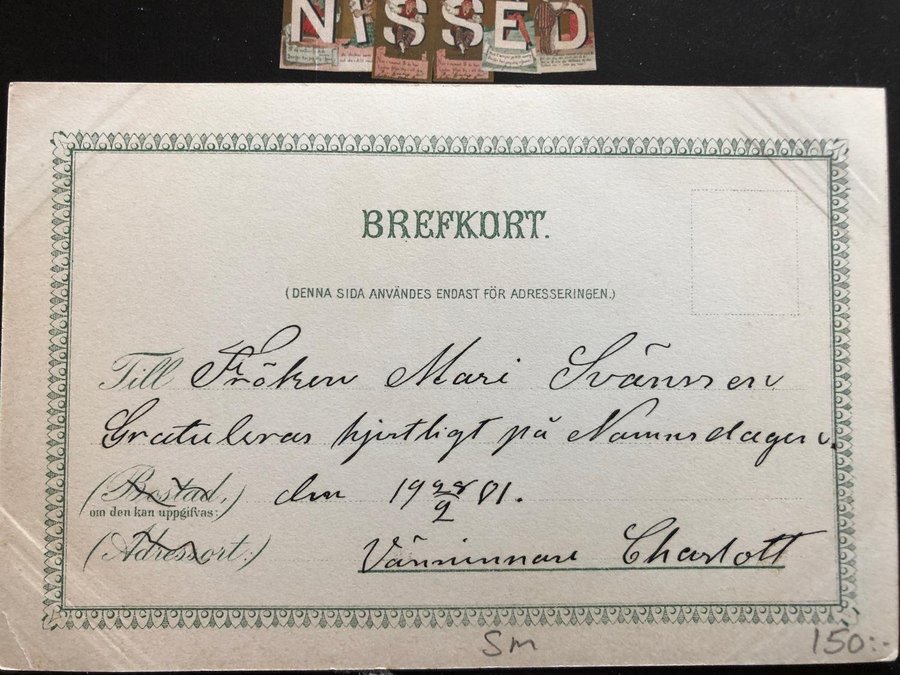 NISSED
BREFKORT.
(DENNA SIDA ANVÄNDES ENDAST FÖR ADRESSERINGEN.)
Till Fröken Mari Svänssen
Gratuleras hjertligt på Namnsdagen.
(Bostad,) den 19 28/2 01.
om den kan uppgifvas:
(Adressort:) Vänninnan Charlott
Sm 150:-